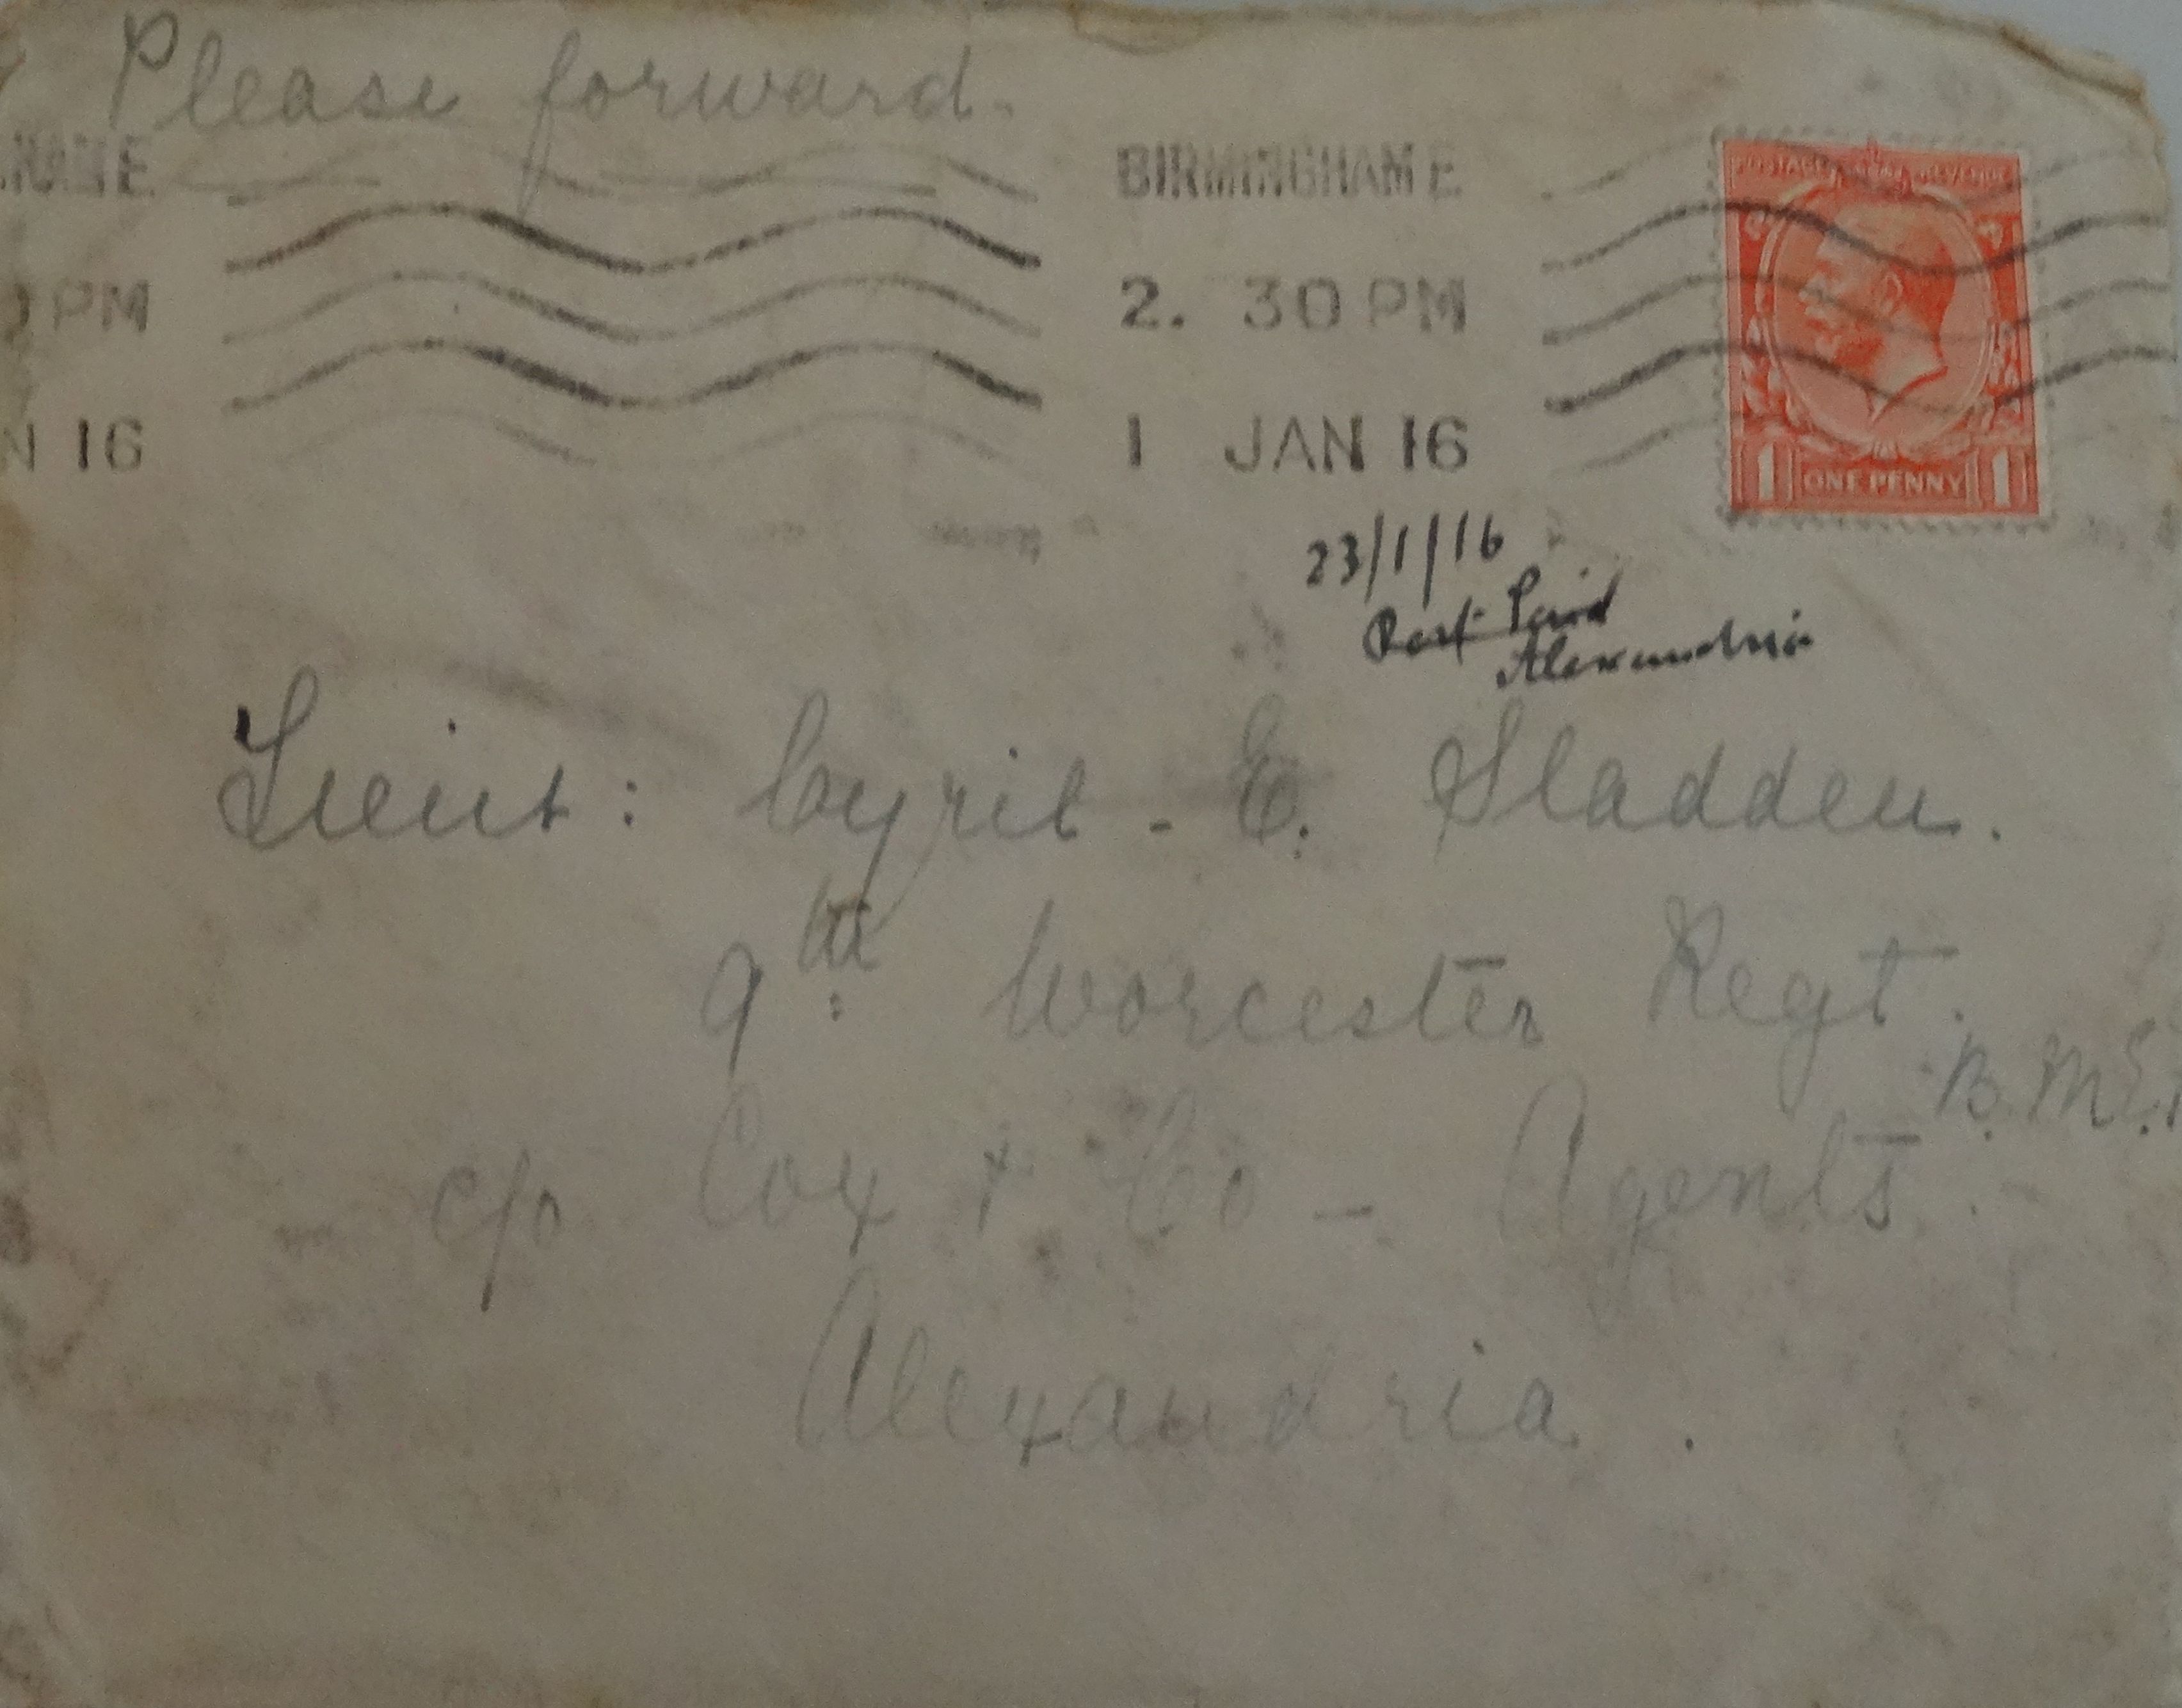 Please forward.
BIRMINGHAM E
2. 30 PM
1 JAN 16
NAME
PM
N 16
POSTAGE REVENUE
1 ONE PENNY 1
23/1/16
Post Paid
Alexandria
Lieut: Cyril. E. Sladden.
9th: Worcester Regt.
B.M.E.
c/o Cox & Co – Agents.
Alexandria.